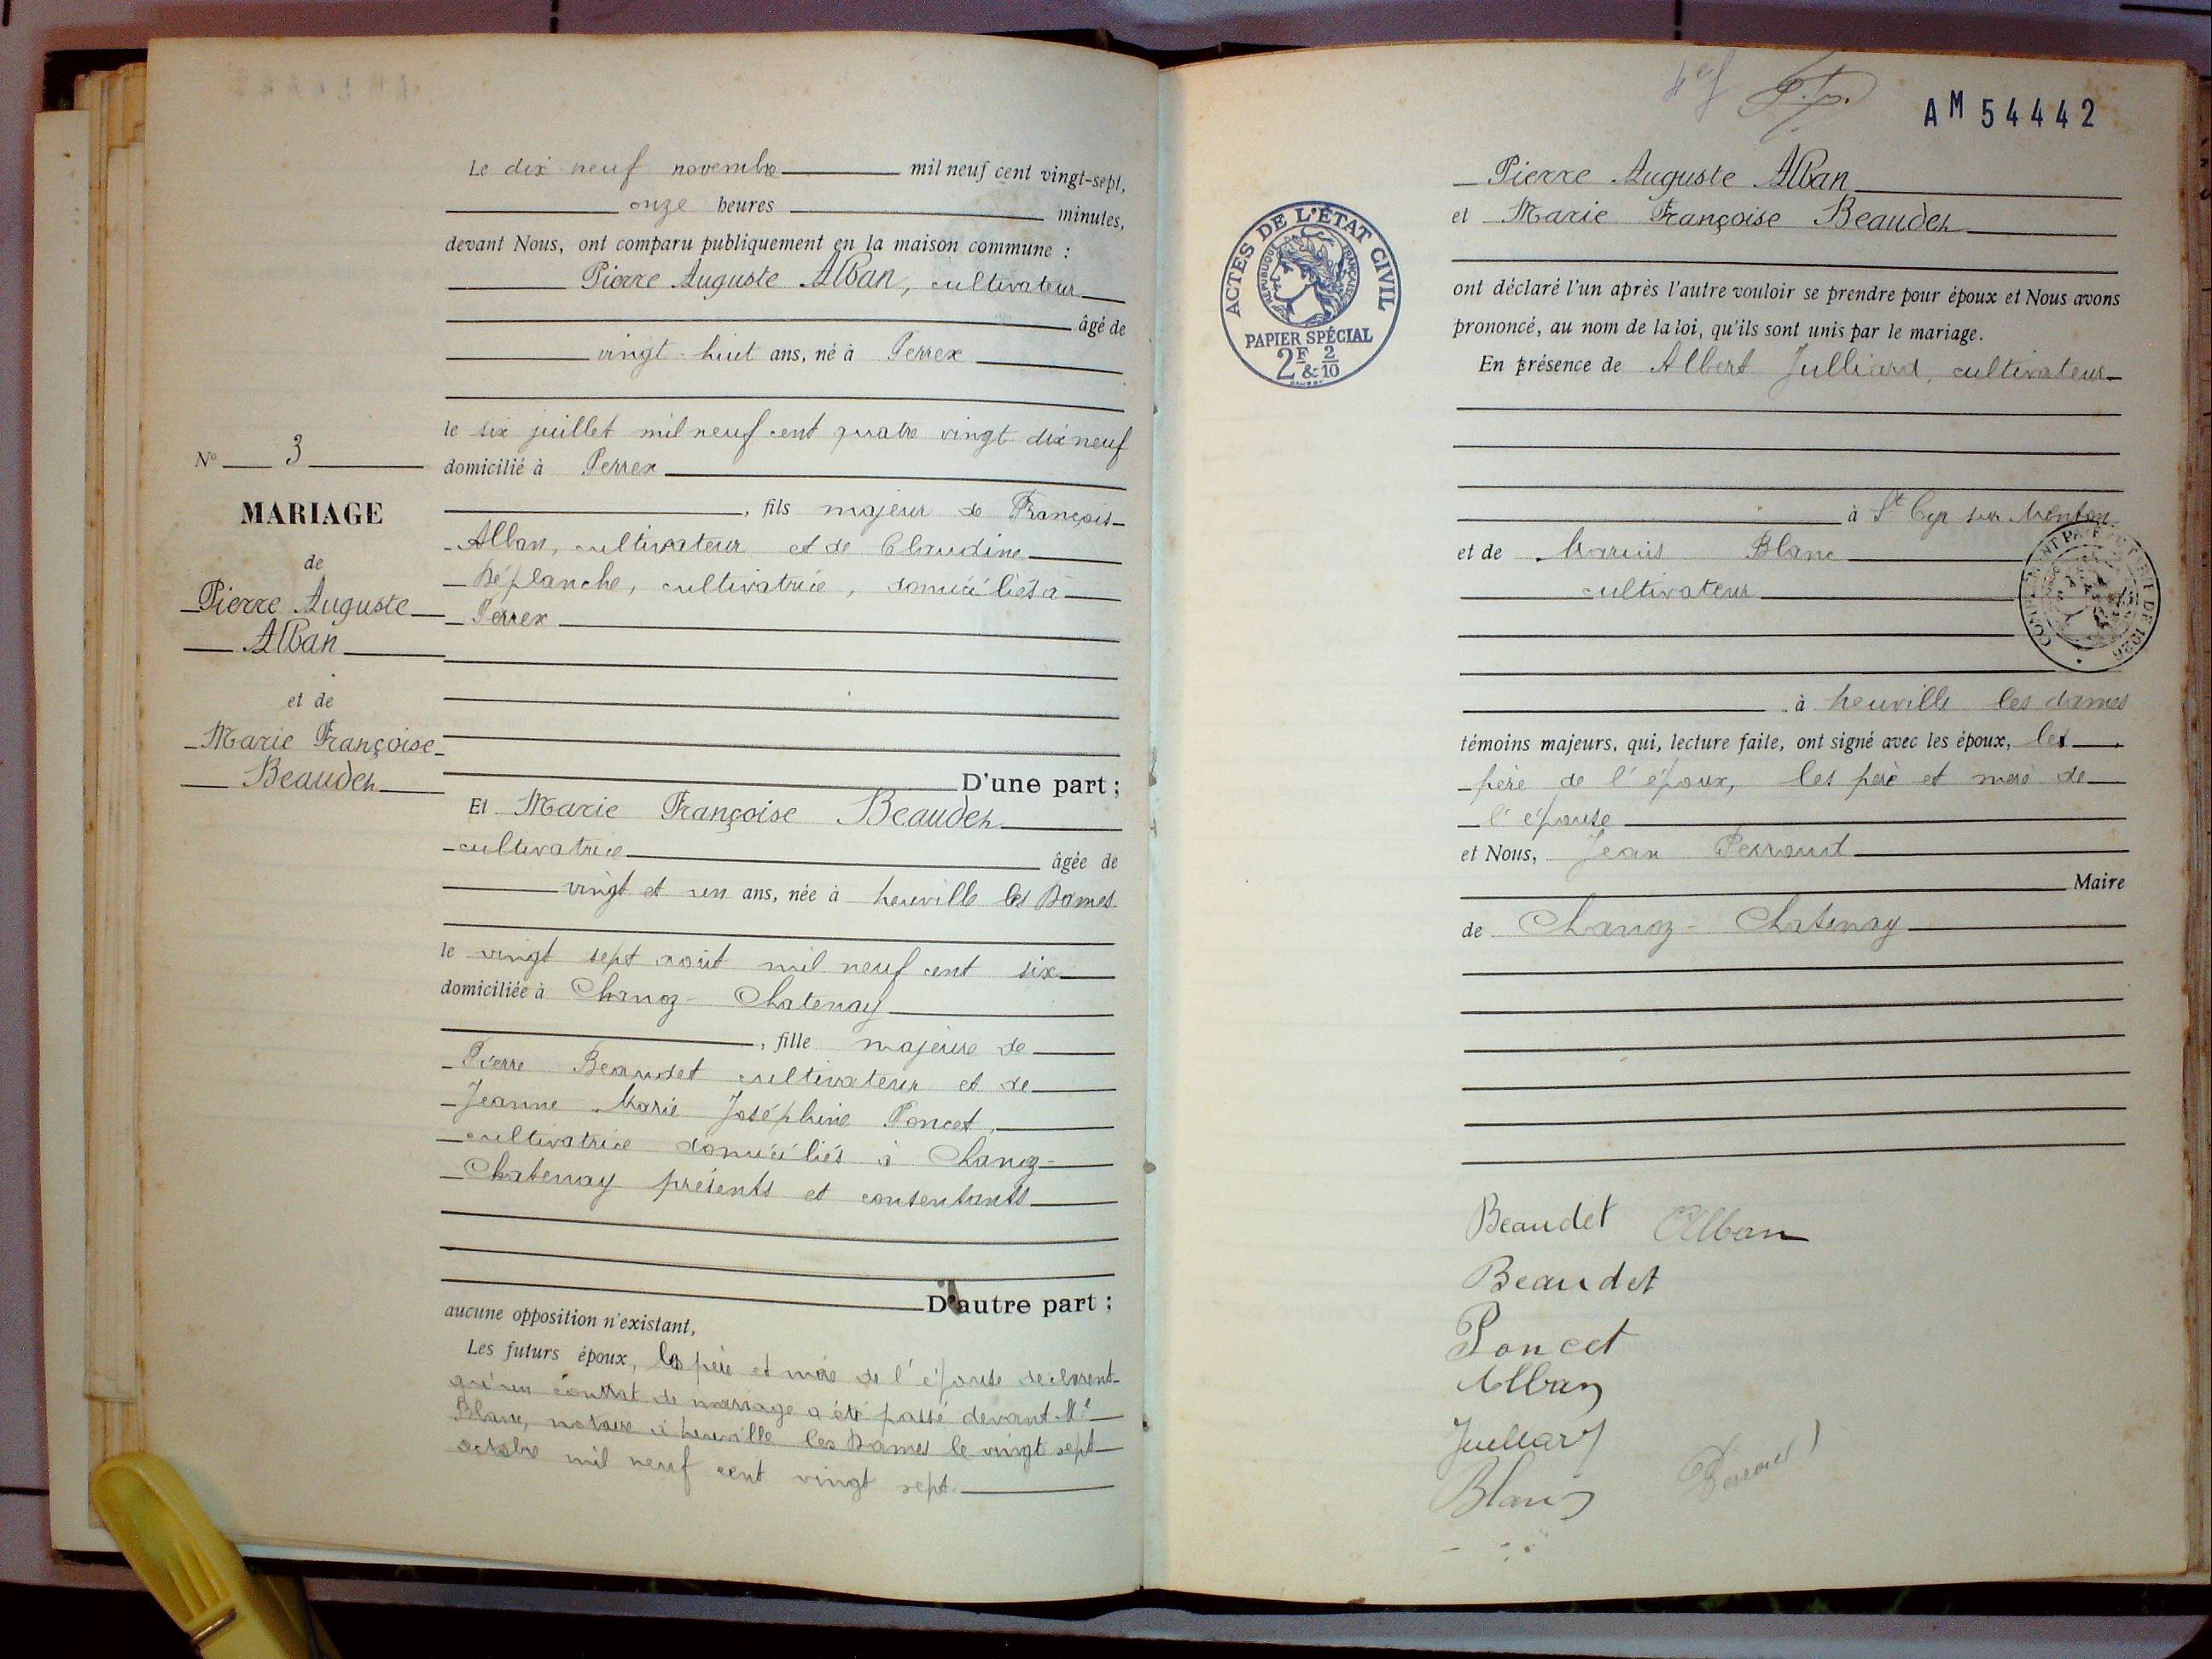 Le dix neuf novembre mil neuf cent vingt-sept,
onze heures minutes,
devant Nous, ont comparu publiquement en la maison commune :
Pierre Auguste Alban, cultivateur
âgé de
vingt-huit ans, né à Perrex
le six juillet mil neuf cent quatre vingt dix neuf
domicilié à Perrex
, fils majeur de François
Alban, cultivateur et de Claudine
Déplanche, cultivatrice, domiciliés à
Perrex
D'une part ;
Et Marie Françoise Beaudet
cultivatrice âgée de
vingt et un ans, née à Neuville les Dames
le vingt sept août mil neuf cent six
domiciliée à Chanoz-Chatenay
, fille majeure de
Pierre Beaudet cultivateur et de
Jeanne Marie Joséphine Poncet,
cultivatrice domiciliés à Chanoz-
Chatenay présents et consentants
D'autre part ;
aucune opposition n'existant,
Les futurs époux, les père et mère de l'épouse declarent
qu'un contrat de mariage a été passé devant Me
Blanc, notaire à Neuville les Dames le vingt sept
octobre mil neuf cent vingt sept.
N° 3
MARIAGE
de
Pierre Auguste
Alban
et de
Marie Françoise
Beaudet
AM 54442
Pierre Auguste Alban
et Marie Françoise Beaudet
ont déclaré l'un après l'autre vouloir se prendre pour époux et Nous avons
prononcé, au nom de la loi, qu'ils sont unis par le mariage.
En présence de Albert Julliard, cultivateur
à St Cyr sur Menton
et de Marius Blanc
cultivateur
à Neuville les dames
témoins majeurs, qui, lecture faite, ont signé avec les époux, les
père de l'époux, les père et mère de
l'épouse
et Nous, Jean Perroud
Maire
de Chanoz-Chatenay
ACTES DE L'ÉTAT CIVIL
RÉPUBLIQUE FRANÇAISE
PAPIER SPÉCIAL
2F & 2/10
DE 1926
Beaudet Alban
Beaudet
Poncet
Alban
Julliard
Blanc Perroud